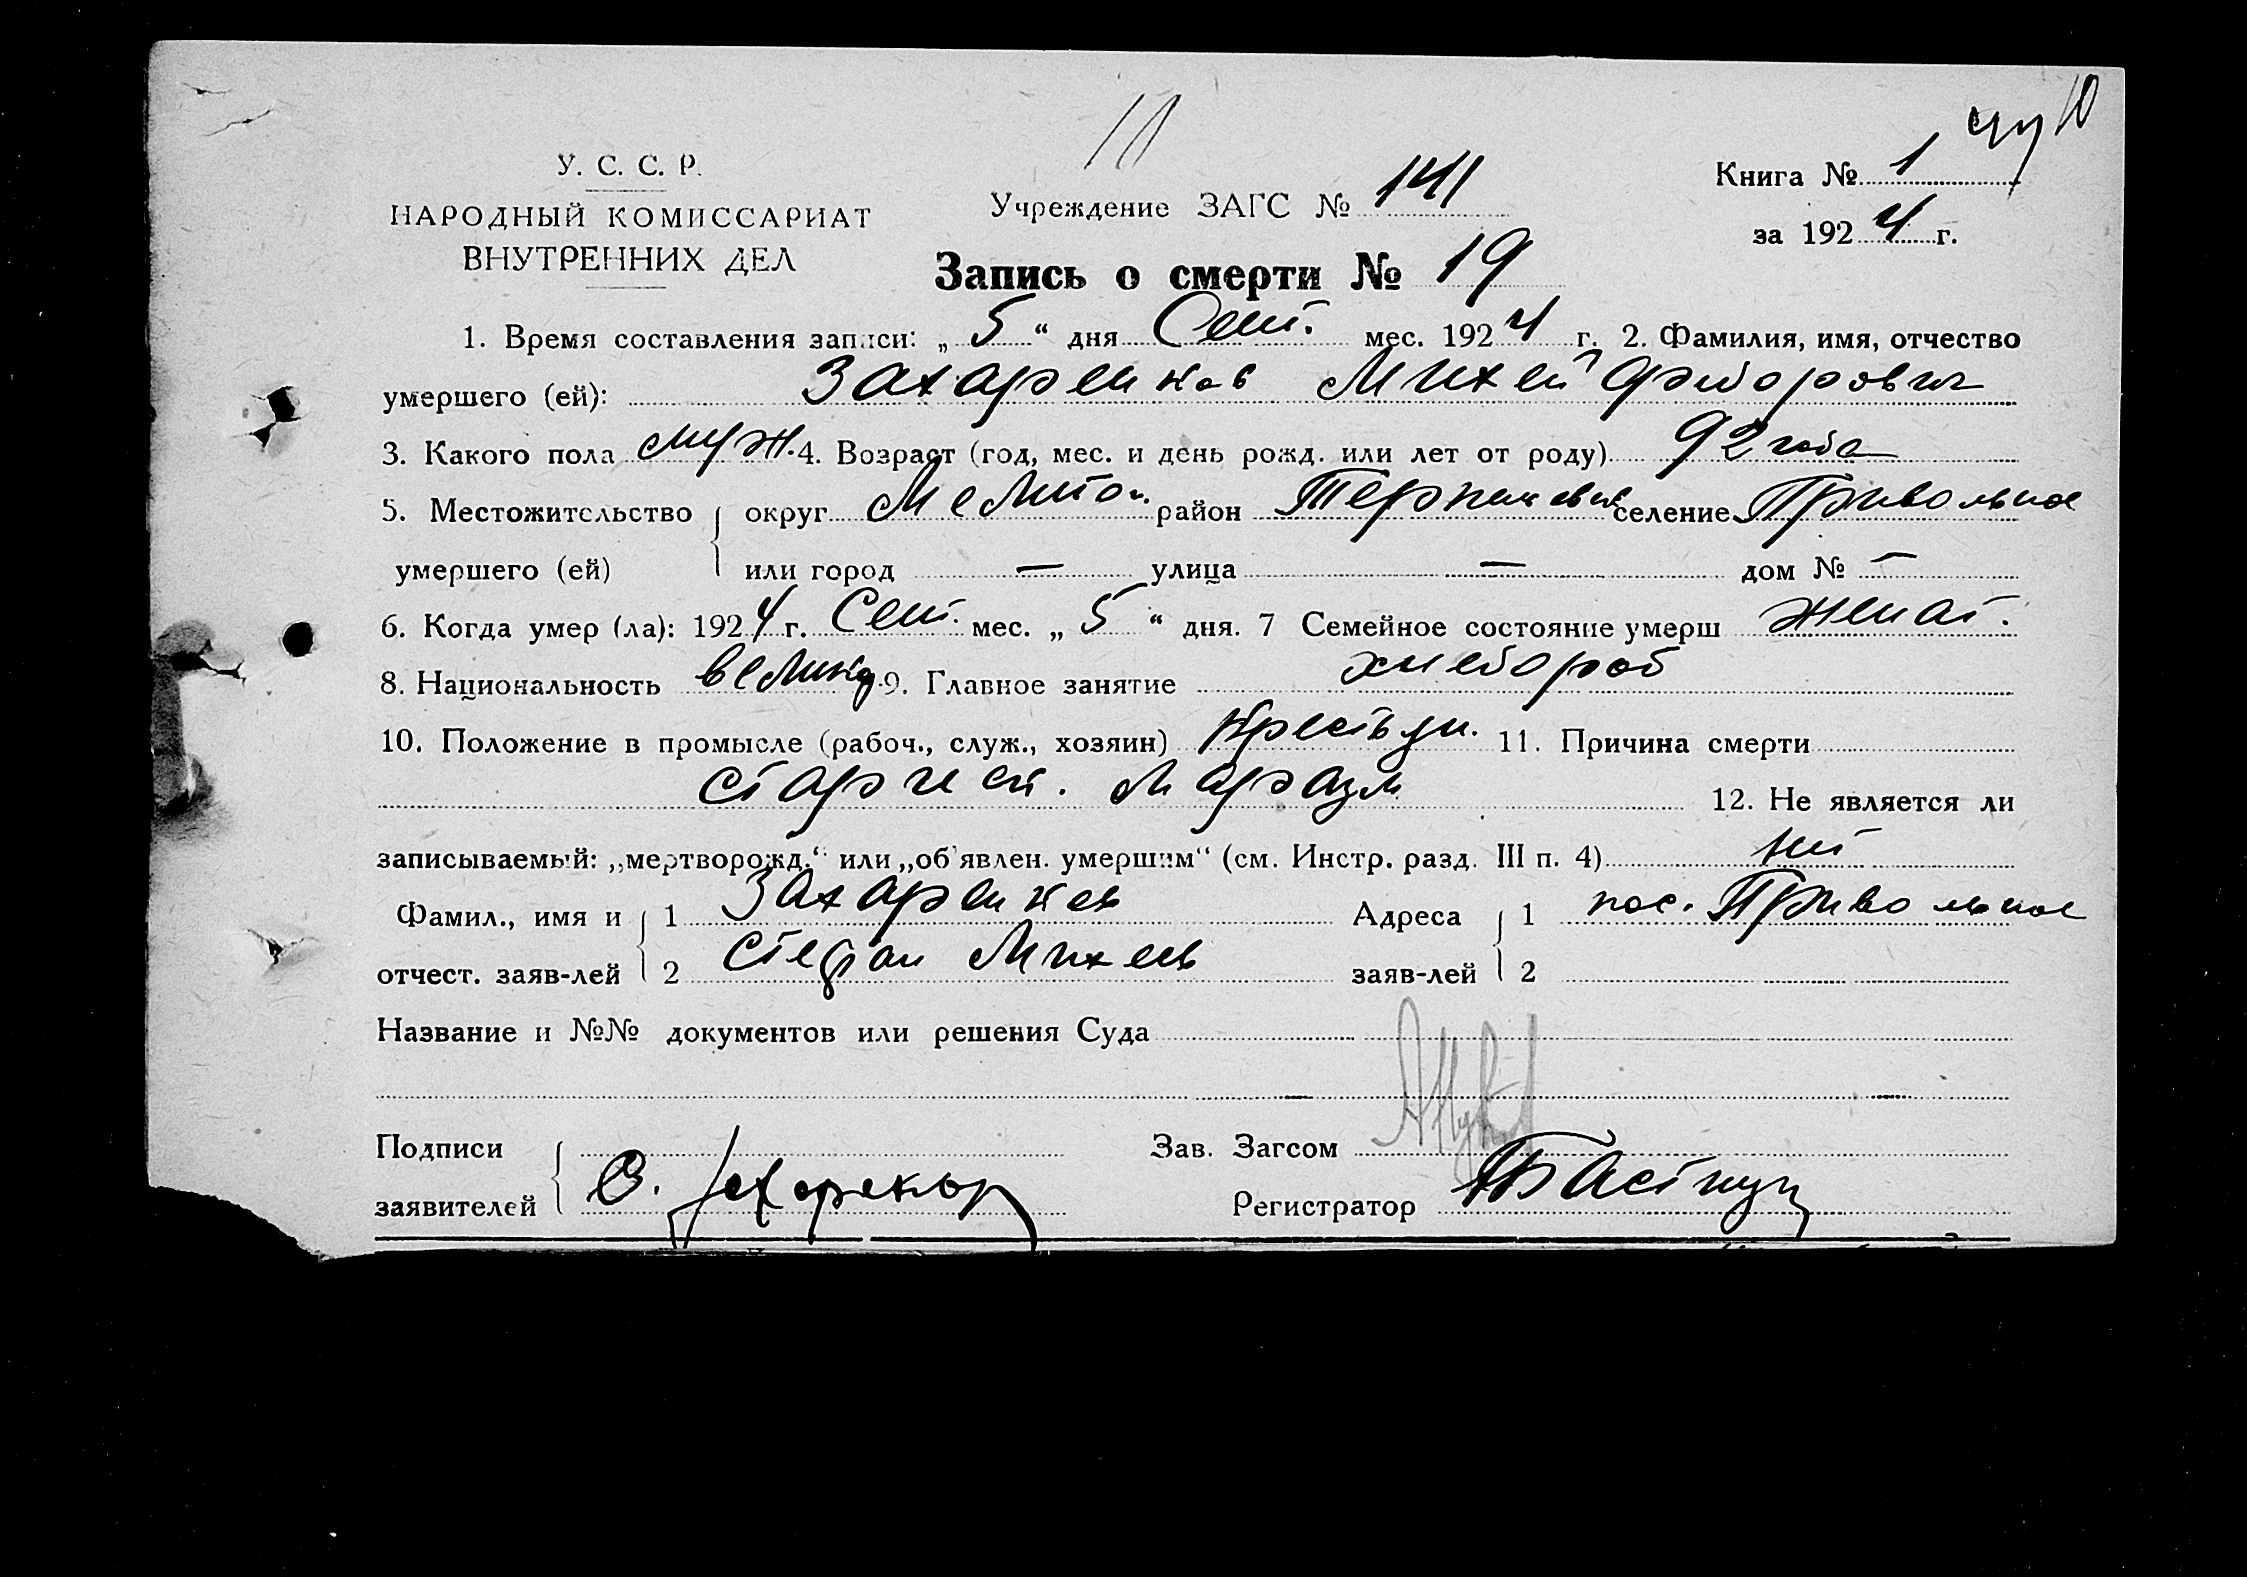 У. С. С. Р.
НАРОДНЫЙ КОМИССАРИАТ
ВНУТРЕННИХ ДЕЛ
Учреждение ЗАГС № 141
Книга № 1
за 1924 г.
Запись о смерти № 19
1. Время составления записи: „ 5 “ дня Сент. мес. 1924 г. 2. Фамилия, имя, отчество
умершего (ей): Захаренков Михей Федорович
3. Какого пола муж. 4. Возраст (год, мес. и день рожд. или лет от роду) 92 года
5. Местожительство округ Мелитоп. район Терпеньевск селение Привольное
умершего (ей) или город — улица — дом № —
6. Когда умер (ла): 1924 г. Сент. мес. „ 5 “ дня. 7 Семейное состояние умерш женат.
8. Национальность велик 9. Главное занятие хлебороб
10. Положение в промысле (рабоч., служ., хозяин) Крестьян. 11. Причина смерти
старческ. Маразм 12. Не является ли
записываемый: „мертворожд.“ или „об'явлен. умершим“ (см. Инстр. разд. III п. 4) нет
Фамил., имя и 1 Захаренков Адреса 1 пос. Привольное
отчест. заяв-лей 2 Стефан Михеев заяв-лей 2
Название и №№ документов или решения Суда
Подписи Зав. Загсом
заявителей С. Регистратор